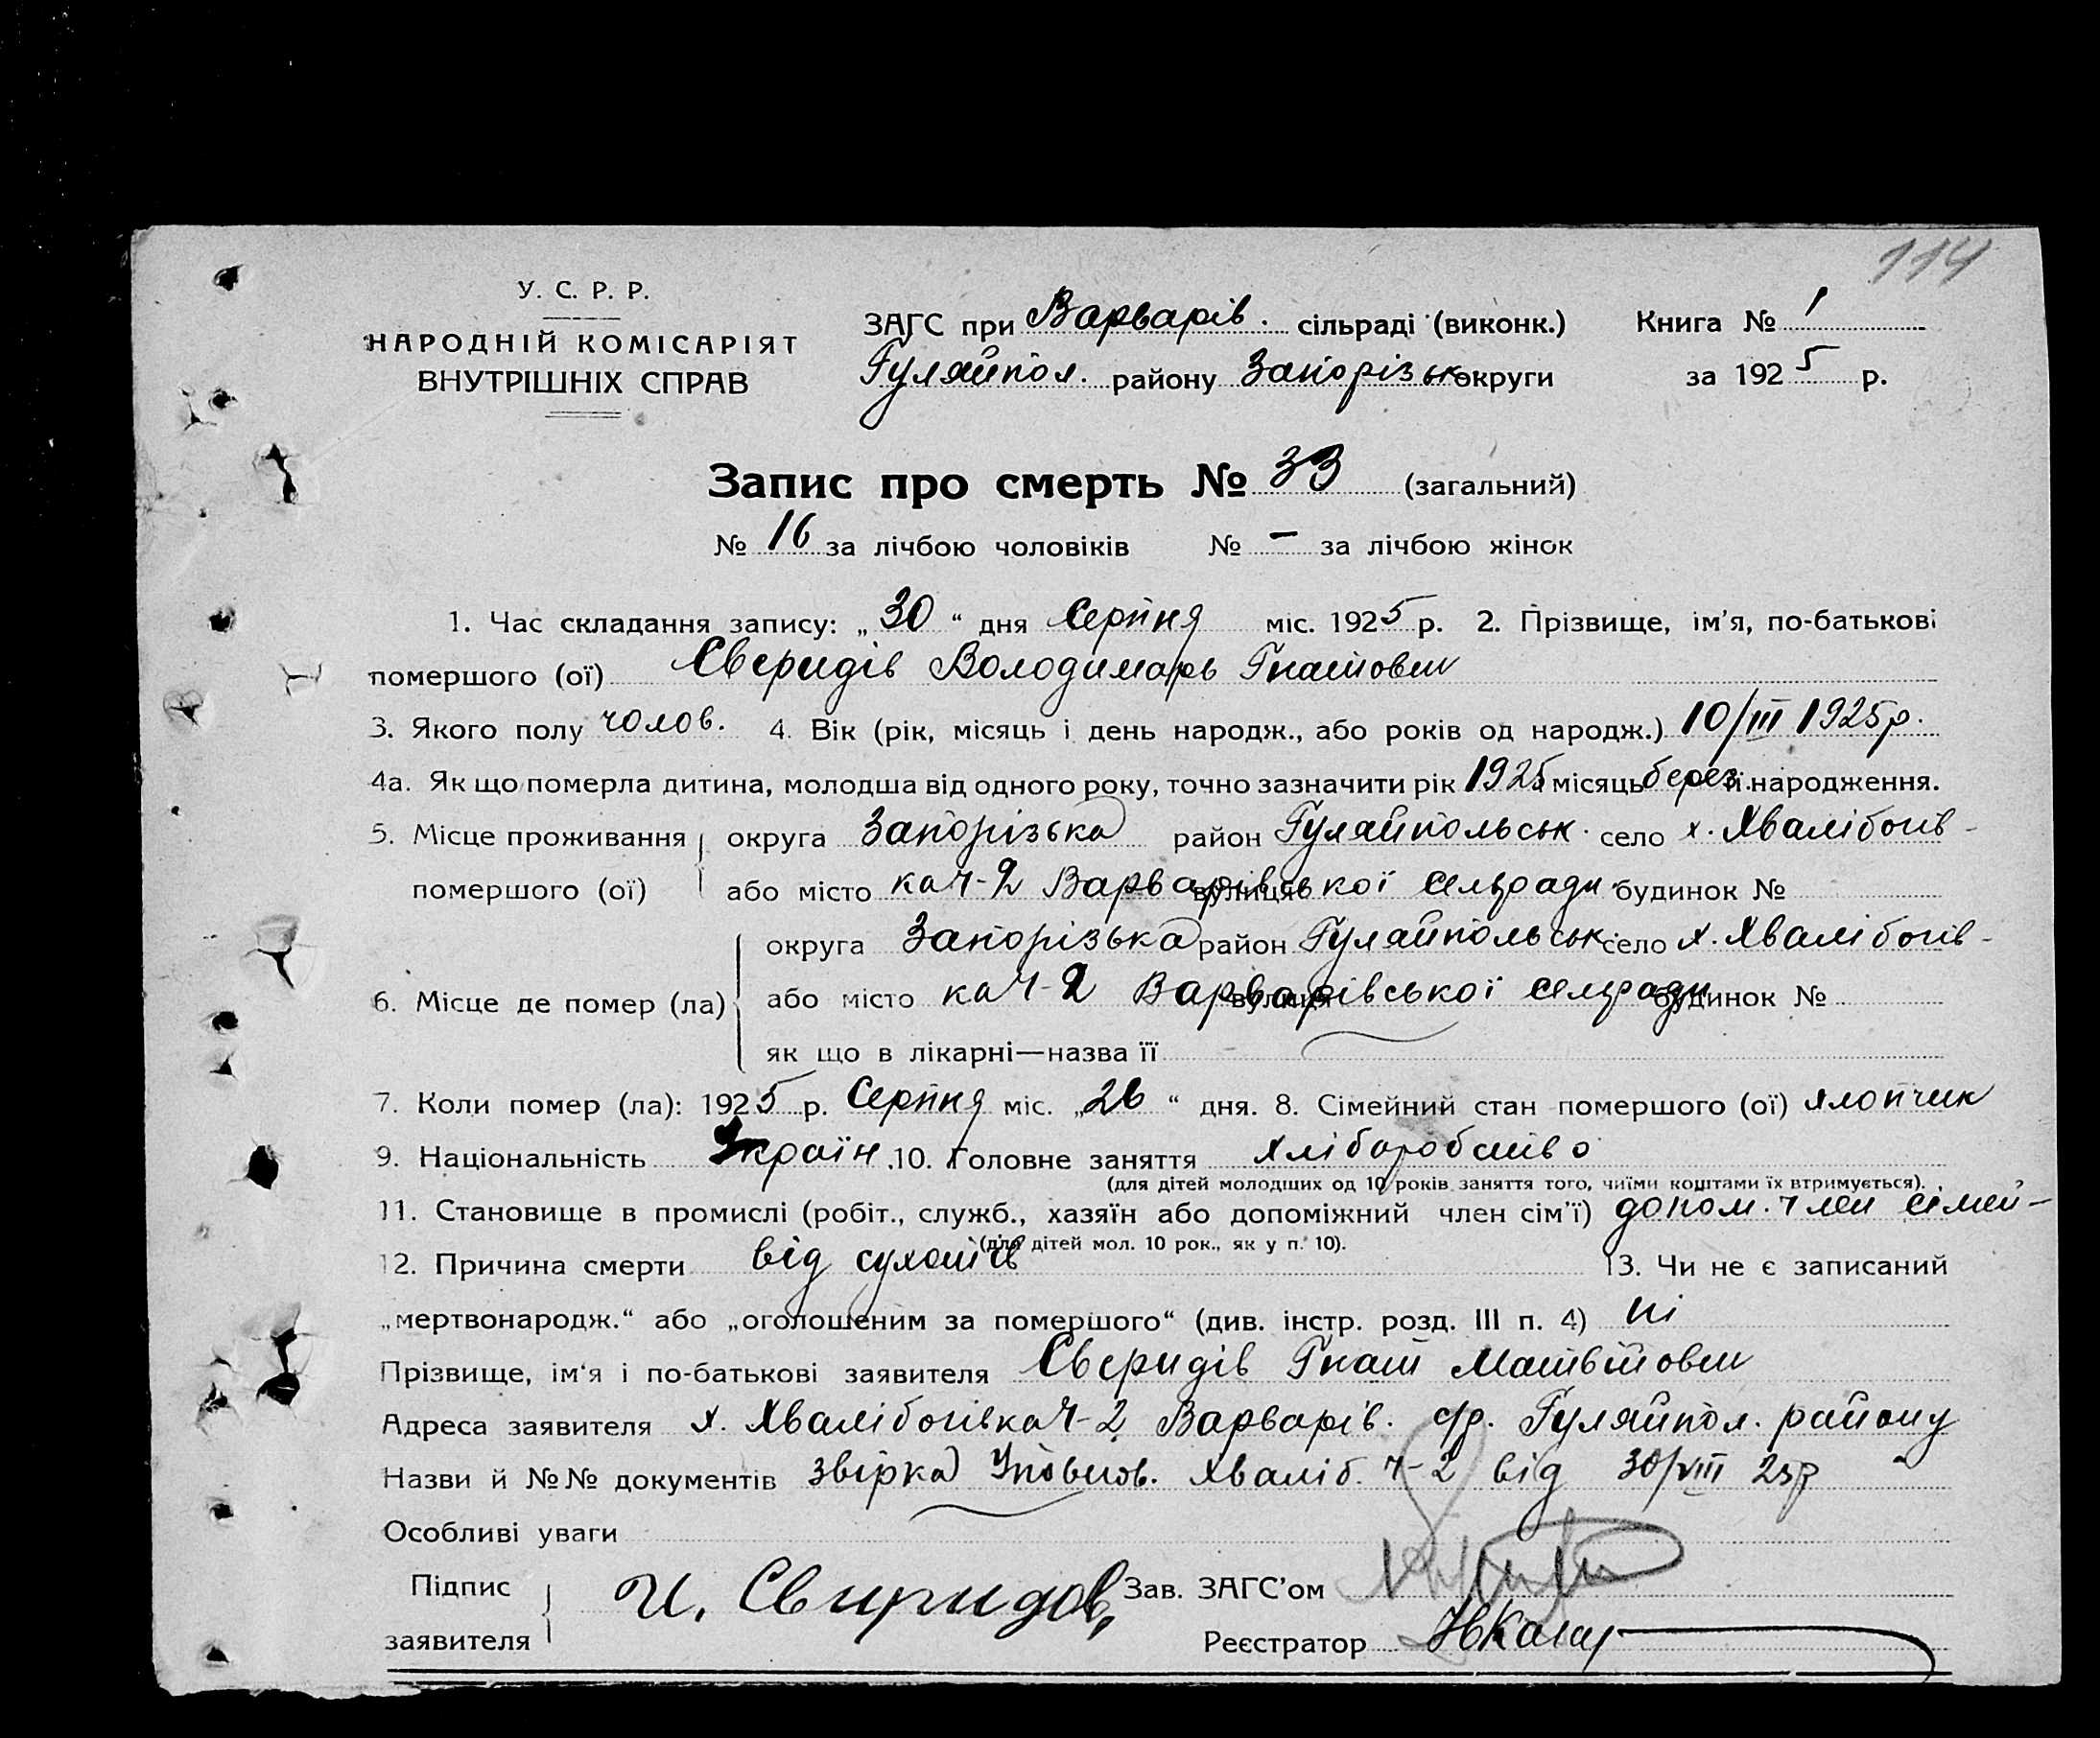 114
У. С. Р. Р.
НАРОДНІЙ КОМІСАРІЯТ
ВНУТРІШНІХ СПРАВ
ЗАГС при Варварів. сільраді (виконк.) Книга № 1
Гуляйпол. району Запорізьк округи за 1925 р.
Запис про смерть № 33 (загальний)
№ 16 за лічбою чоловіків № – за лічбою жінок
1. Час складання запису: „30“ дня Серпня міс. 1925 р. 2. Прізвище, ім'я, по-батькові
помершого (ої) Свєридів Володимарь Гнатович
3. Якого полу чолов. 4. Вік (рік, місяць і день народж., або років од народж.) 10/III 1925р.
4а. Як що померла дитина, молодша від одного року, точно зазначити рік 1925 місяць берез. її народження.
5. Місце проживання округа Запорізька район Гуляйпольськ. село х. Хвалібогів-
помершого (ої) або місто ка Ч-2 Варварівської сельради вулиця будинок №
округа Запорізька район Гуляйпольськ. село х. Хвалібогів-
6. Місце де помер (ла) або місто ка Ч-2 Варварівської сельради вулиця будинок №
як що в лікарні—назва її
7. Коли помер (ла): 1925 р. Серпня міс. „26“ дня. 8. Сімейний стан помершого (ої) хлопчик
9. Національність Україн. 10. Головне заняття хліборобство
(для дітей молодших од 10 років заняття того, чиїми коштами їх втримується).
11. Становище в промислі (робіт., служб., хазяїн або допоміжний член сім'ї) допом. член сімей-
(для дітей мол. 10 рок., як у п. 10).
12. Причина смерти від сухотів 13. Чи не є записаний
„мертвонародж.“ або „оголошеним за помершого“ (див. інстр. розд. III п. 4) ні
Прізвище, ім'я і по-батькові заявителя Свєридів Гнат Матвійович
Адреса заявителя х. Хвалібогівка Ч-2 Варварів. с/р. Гуляйпол. району
Назви й №№ документів звірка Уповнов. Хваліб. Ч-2 від 30/VIII 25р
Особливі уваги
Підпис
заявителя И. Свиридов Зав. ЗАГС'ом
Реєстратор